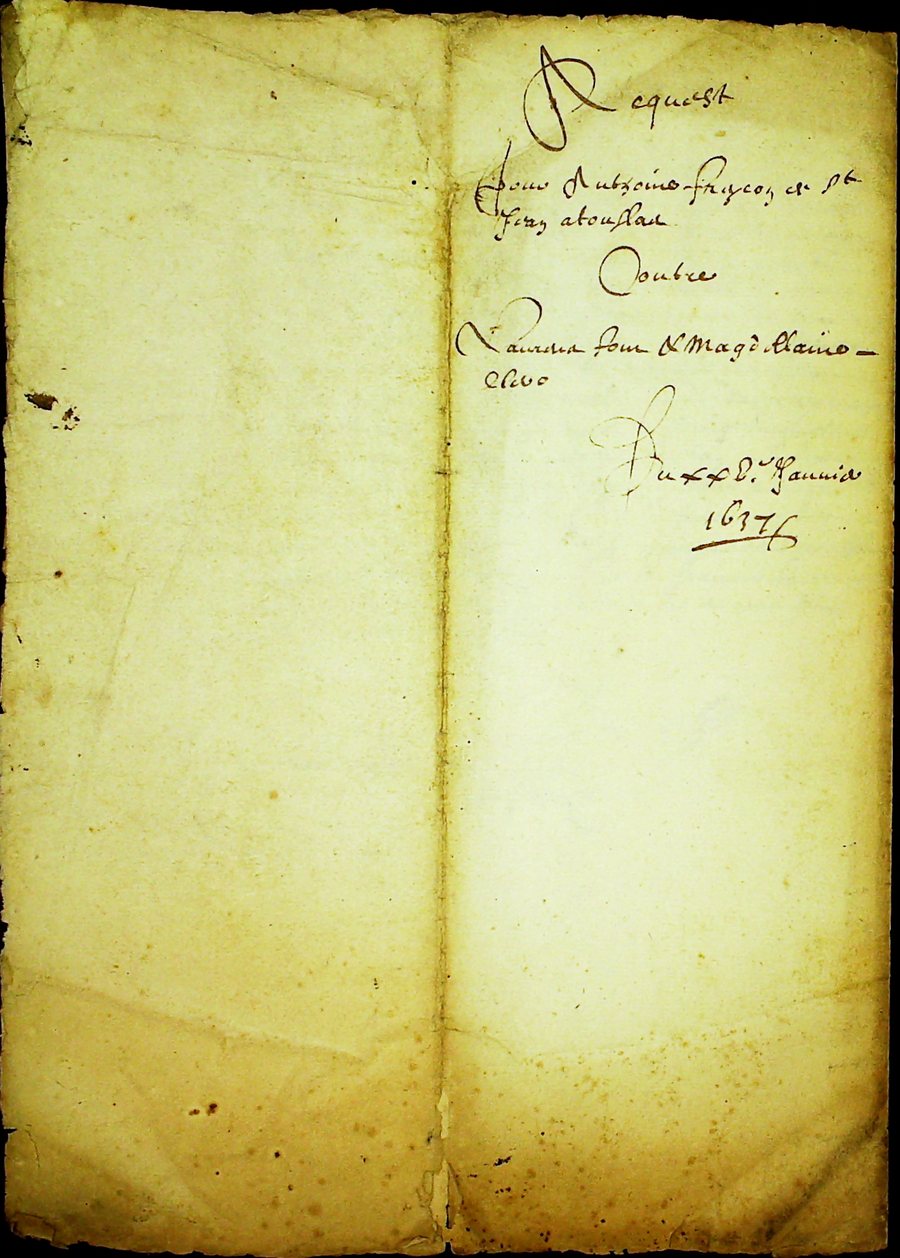 Request
Pour Anthoine françon de St
Jean
Contre
Laurens & Magdellaine
Du xx Janvier
1637